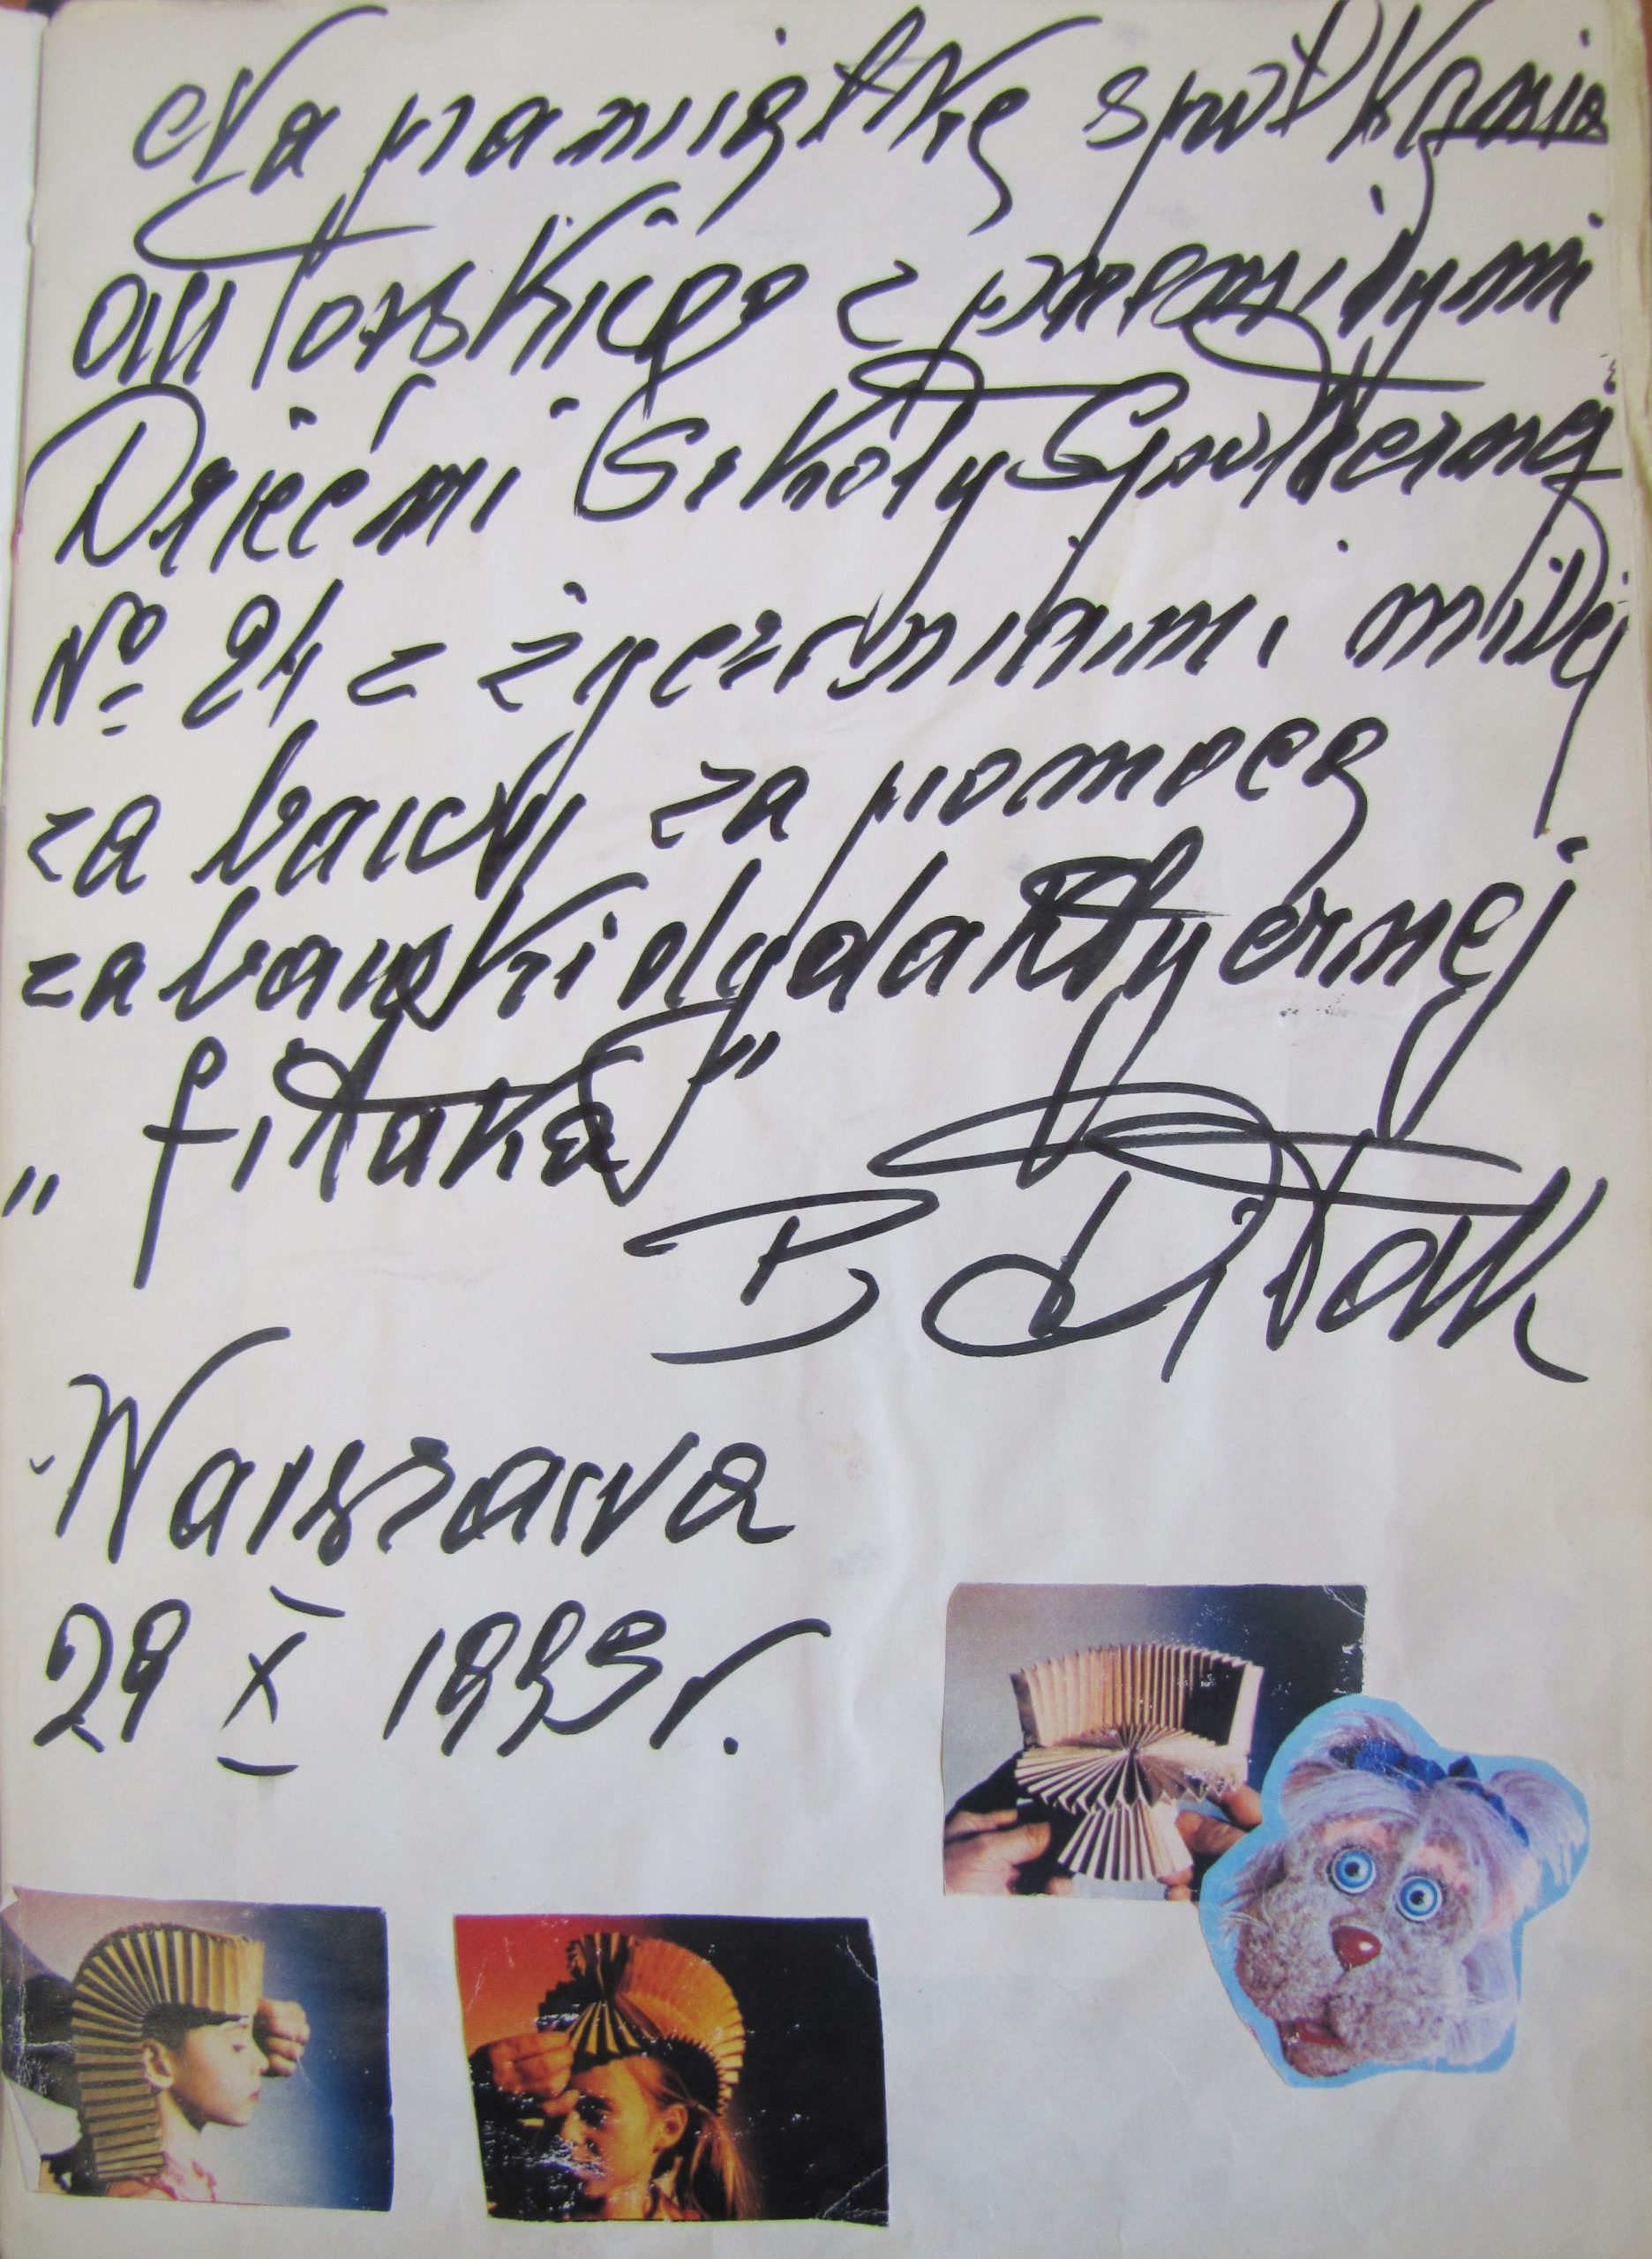 Na pamiątkę spotkania
autorskiego z przemiłymi
Dziećmi Szkoły Społecznej
Nº 24 z życzeniami miłej
zabawy za pomocą
zabawki dydaktycznej
„fitaka”
Warszawa
29 X 1993r.